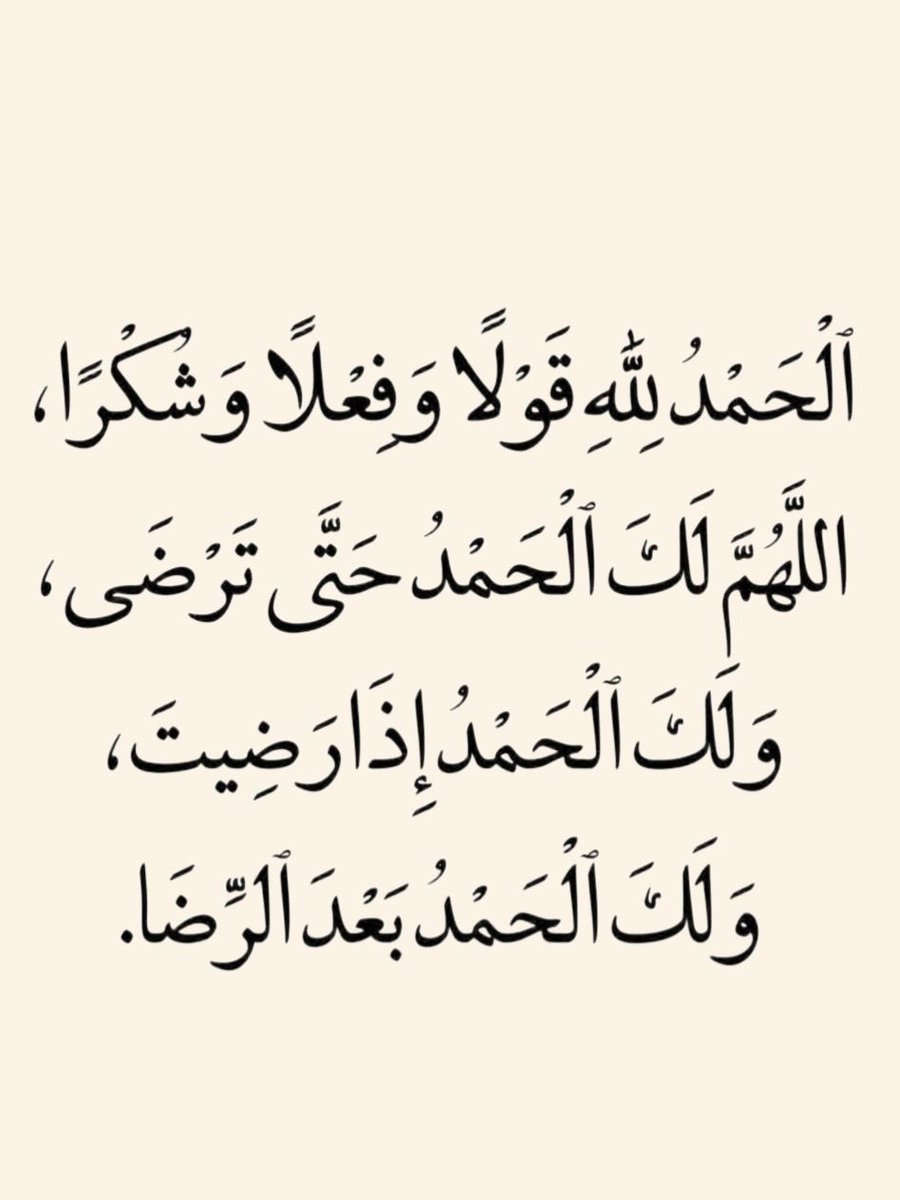 ٱلْحَمْدُ لِلّٰهِ قَوْلًا وَفِعْلًا وَشُكْرًا،
اللَّهُمَّ لَكَ ٱلْحَمْدُ حَتَّى تَرْضَى،
وَلَكَ ٱلْحَمْدُ إِذَا رَضِيتَ،
وَلَكَ ٱلْحَمْدُ بَعْدَ ٱلرِّضَا.